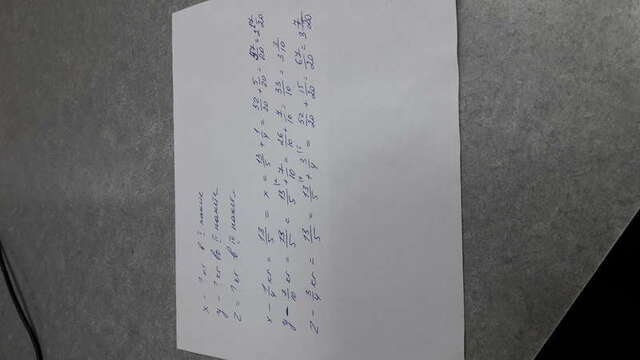 x - ? кг в I пакете
y - ? кг во II пакете
z = ? кг в III пакет
x - 1/4 кг = 13/5 = x = 13/5 + 1/4 = 52/20 + 5/20 = 57/20 = 2 17/20
y - 7/10 кг = 13/5 = 13/5 + 7/10 = 26/10 + 7/10 = 33/10 = 3 3/10
z - 3/4 кг = 13/5 = 13/5 + 3/4 = 52/20 + 15/20 = 67/20 = 3 7/20